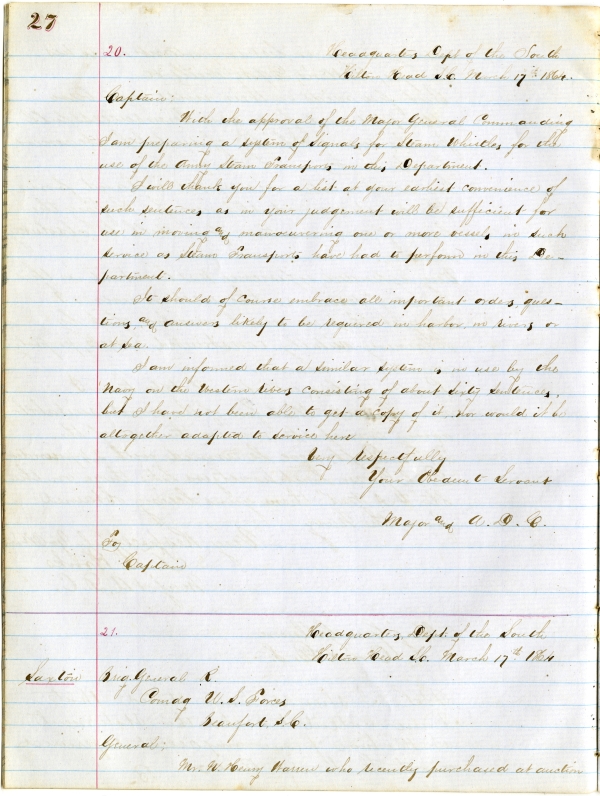 27
20.
Headquarters Dept of the South
Hilton Head S.C. March 17th 1864.
Captain:
With the approval of the Major General Commanding
I am preparing a system of Signals for Steam Whistles for the
use of the Army Steam Transports in this Department.
I will thank you for a list at your earliest convenience of
such sentences as in your judgement will be sufficient for
use in moving and manoeuvering one or more vessels in such
service as Steam Transports have had to perform in this De-
partment.
It should of course embrace all important orders, ques-
tions and answers likely to be required in harbor, in rivers or
at sea.
I am informed that a similar system is in use by the
Navy on the Western Rivers consisting of about sixty sentences,
but I have not been able to get a copy of it, nor would it be
altogether adapted to service here
Very Respectfully
Your Obedient Servant
Major and A. D. C.
To
Captain
21.
Headquarters Dept. of the South
Hilton Head S.C. March 17th 1864
Saxton
Brig. General R.
Comdg U. S. Forces
Beaufort S.C.
General;
Mr. W. Henry Warren who recently purchased at auction